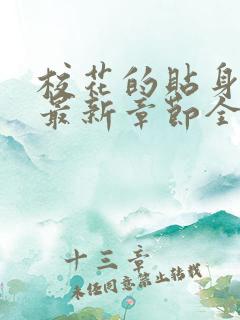 校花的贴身
最新章节全
十三章
未经同意禁止转载